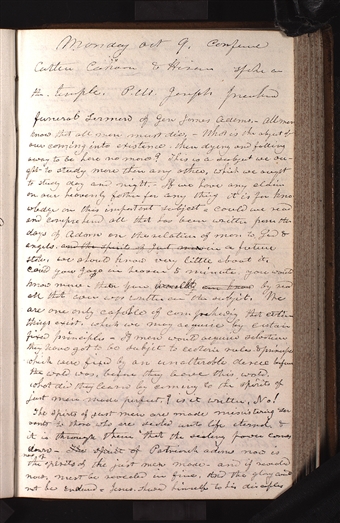 Monday Oct 9, Confere
Cutler Cahoon & Hiram spoke on
the temple. P.M. Joseph Preached
funeral sermon of Gen James Adams. All men
know that all men must die. — What is the object of
our coming into existence. then dying and falling
away to be here no more? This is a subject we ou-
ght to study more than any other, which we ought
to study day and night. — If we have any claim
on our heavenly father for any thing it is for kno
wledge on this important subject — could we read
and comprehend all that has been written from the
days of Adam on the relation of man to God &
angels. and the spirits of just men in a future
state. we should know very little about it.
could you gaze in heaven 5 minute. you would
know more — than you would by rea
all that ever was written on the subject. We
are one only capable of comprehending that certain
things exist. which we may acquire by certain
fixed principles — If men would acquire salvation
they have got to be subject to certain rules & principles
which were fixed by an unalterable decree before
the world was, before they leave this world.
what did they learn by coming to the spirits of
just men made perfect? is it written, No!
The spirits of just men are made ministering ser
vants to those who are sealed unto life eternal. &
it is through them that the sealing power comes
down — The spirit of Patriarch Adams now is
one of the spirits of the just men made — and if revealed
now, must be revealed in fire, and the glory could
not be endured — Jesus shewed himself to his disciples